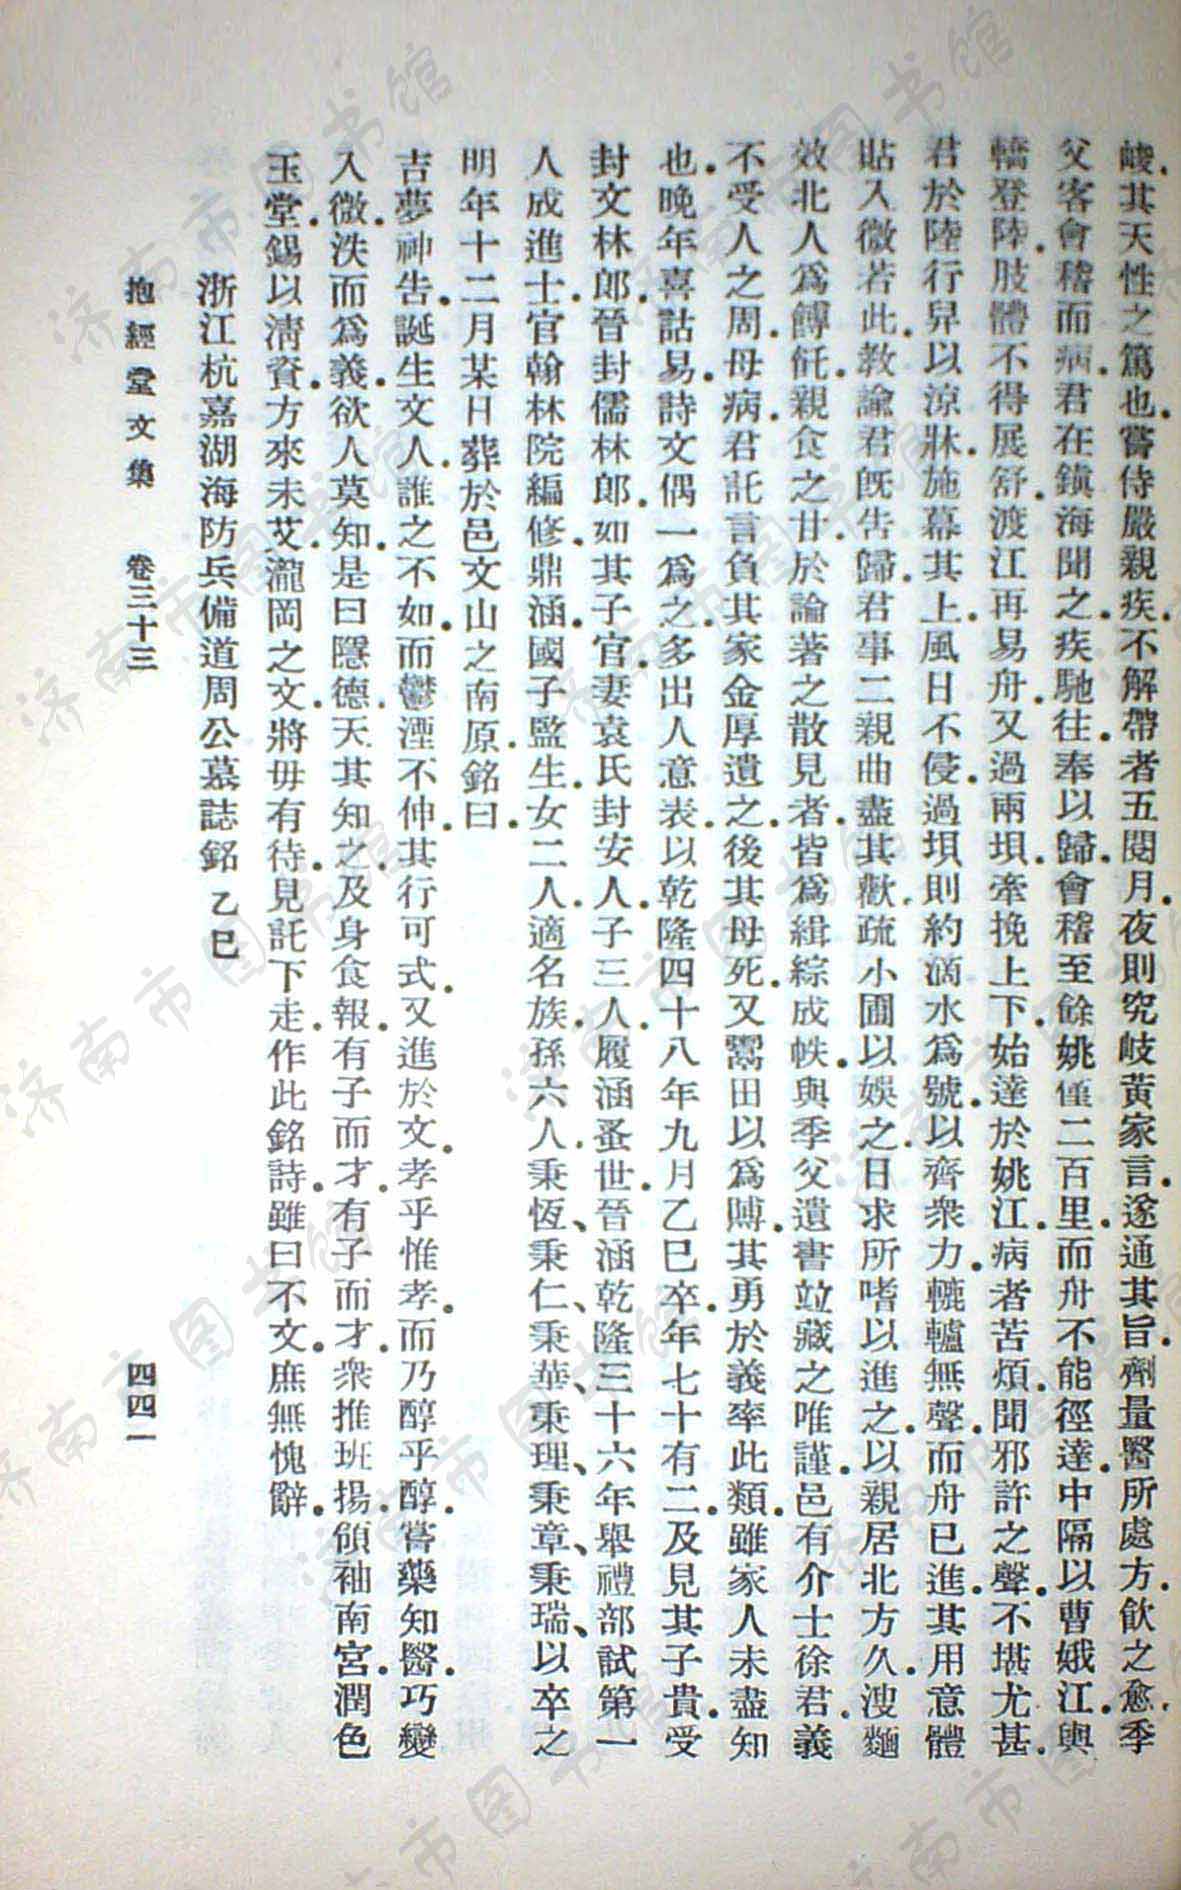 峻.其天性之篤也.嘗侍嚴親疾.不解帶者五閱月.夜則究岐黃家言.遂通其旨.劑量醫所處方.飮之愈.季
父客會稽而病.君在鎭海聞之.疾馳往.奉以歸.會稽至餘姚僅二百里.而舟不能徑達.中隔以曹娥江.輿
轎登陸.肢體不得展舒.渡江再易舟.又過兩垻.牽挽上下.始達於姚江.病者苦煩.聞邪許之聲.不堪尤甚.
君於陸行.舁以涼牀.施幕其上.風日不侵.過垻則約滴水爲號.以齊衆力.轆轤無聲.而舟已進.其用意體
貼入微若此.敎諭君旣告歸.君事二親曲盡其歡.疏小圃以娛之.日求所嗜以進之.以親居北方久.溲麵
效北人爲餺飥.親食之甘.於論著之散見者.皆爲緝綜成帙.與季父遺書竝藏之唯謹.邑有介士徐君.義
不受人之周.母病.君託言負其家金.厚遺之.後其母死.又鬻田以爲賻.其勇於義率此類.雖家人未盡知
也.晚年喜詁易.詩文偶一爲之.多出人意表.以乾隆四十八年九月乙巳卒.年七十有二.及見其子貴.受
封文林郎.晉封儒林郎.如其子官.妻袁氏封安人.子三人.履涵蚤世.晉涵乾隆三十六年舉禮部試第一
人.成進士.官翰林院編修.鼎涵.國子監生.女二人.適名族.孫六人.秉恆、秉仁、秉華、秉理、秉章、秉瑞、以卒之
明年十二月某日葬於邑文山之南原.銘曰.
吉夢神告.誕生文人.誰之不如.而鬱湮不伸.其行可式.又進於文.孝乎惟孝.而乃醇乎醇.嘗藥知醫.巧變
入微.泆而爲義.欲人莫知.是曰隱德.天其知之.及身食報.有子而才.有子而才.衆推班揚.領袖南宮.潤色
玉堂.錫以淸資.方來未艾.瀧岡之文.將毋有待.見託下走.作此銘詩.雖曰不文.庶無愧辭.
浙江杭嘉湖海防兵備道周公墓誌銘 乙巳
抱經堂文集 卷三十三 四四一